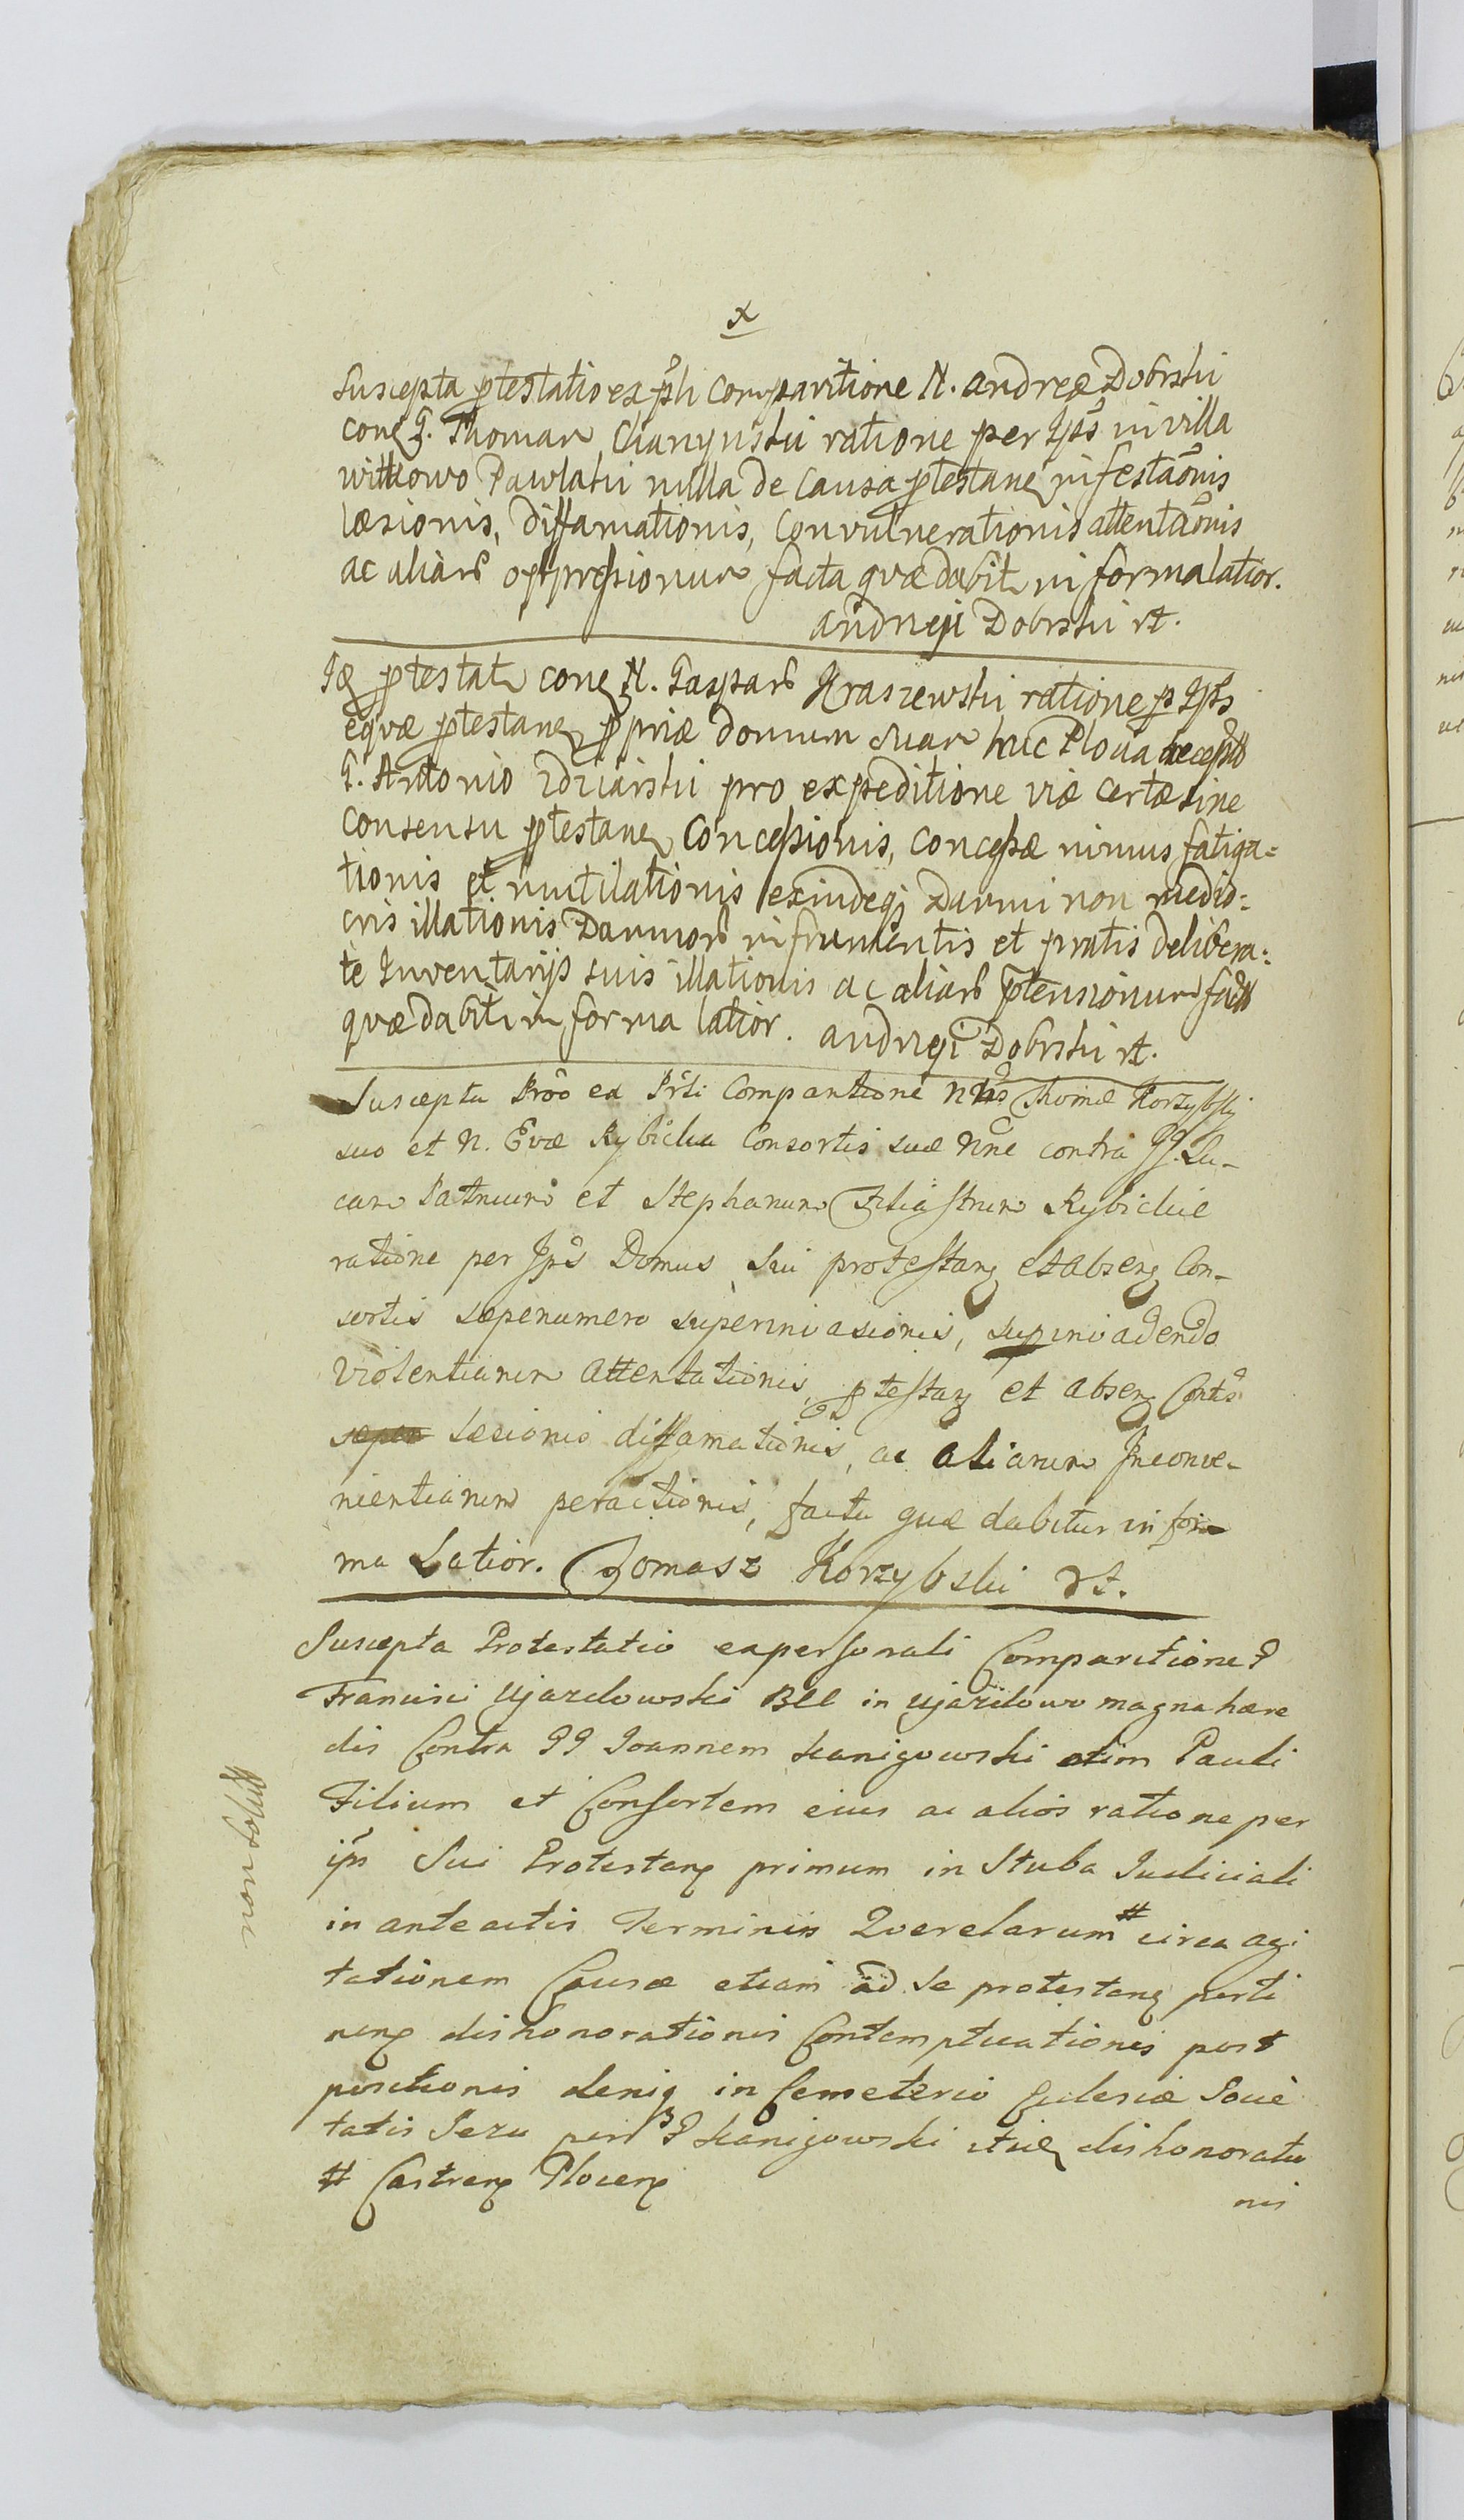 x
Suscepta ptestatio ex psli comparitione N. Andreæ Dobrski
con G. Thomam Chanynski ratione per Ipš in villa
witkowo Pawlaki nulla de causa ptestanę infestaõnis
læsionis, diffamationis, convulnerationis attentaõnis
ac aliarũ oppressionum facta quæ dabit in forma latior.
Andrzej Dobrski rt.
Ię ptestat con N. Gasparũ Kraszewski ratione p Ipš
equæ ptestanę ppriæ domum suam huc Plociã
G. Antonio Zdziarski pro expeditione viæ certæ sine
consensu ptestanę Concessionis, concessæ nimus fatiga=
tionis et mutilationis exindeq Damni non medio=
cris illationis Damnorũ in frumentis et pratis delibera=
te Inventarijs suis illationis ac aliarũ ptensionum
quæ dabit in forma latior. Andrzej Dobrski rt.
Suscepta Proõ ex Prli Comparitione Thomæ Korzybski
suo et N. Evæ Rybicka Consortis suæ Nne contra GG. Lu-
cam Patruum et Stephanum Filiastrum Rybickie
ratione per Ipš Domus Sui protestanę et absenę Con-
sortis sæpenumero superinvasionis, supinvadendo
violentiarum attentationis, ptestanę et absenę Contis
sæpen Læsionis diffamationis, ac aliarum Inconve-
nientiarum peractionis, facta quæ dabitur in for
ma Latior. Tomasz Korzybski rt.
Suscepta Protestatio ex personali Comparitione G
Francisci Ujazdowski BCC in Ujazdowo magna hære
dis Contra GG Joannem Kanigowski olim Pauli
Filium et Consortem eius ac alios ratione per
ips Sui Protestanę primum in Stuba Judiciali
in anteactis Terminis Querelarum # circa agi
tationem Causæ etiam ad se protestanę perti
nenę dishonorationis Contemptuationis post
positionis deniq in Cemeterio Ecclesiæ Socie
tatis Jezu per G Kanigowski itieę dishonoratio
# Castrenę Plocenę
nis
non solut